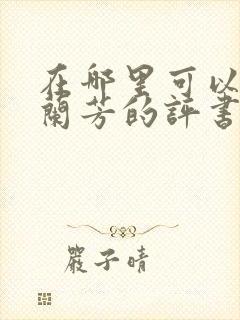 在哪里可以
蘭芳的評書
嚴子晴